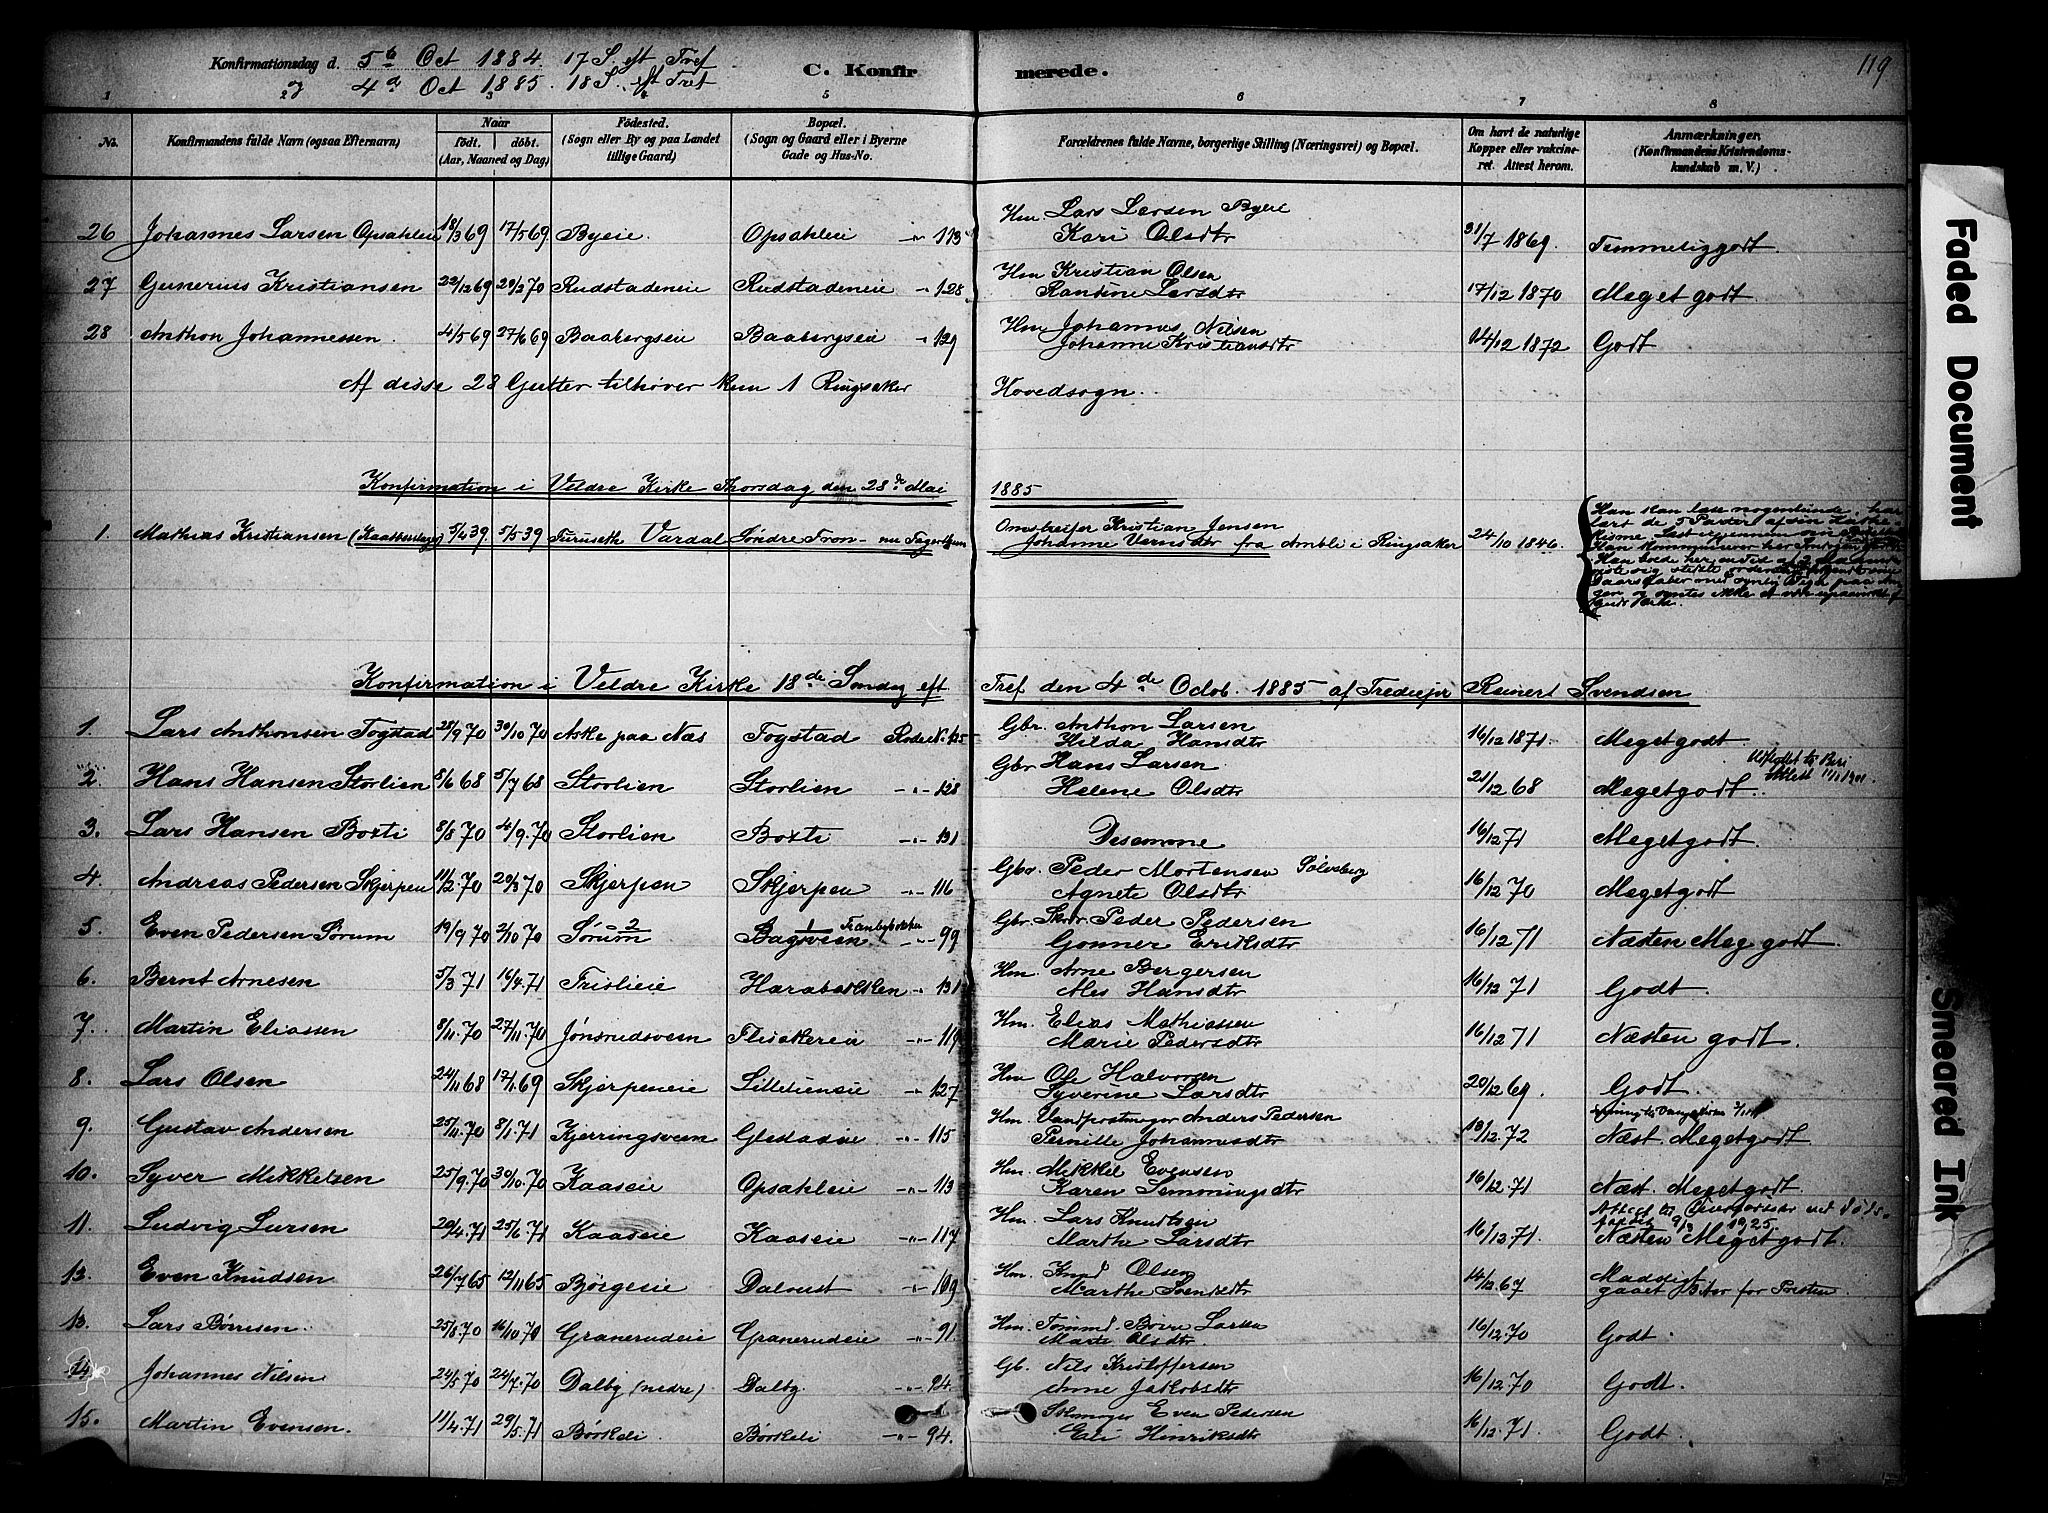 Konfirmationsdag d. 5te Oct 1884. 17 S. eft Tref
C. Konfirmerede.
119
4de Oct 1885. 18 S. eft Tref
1 2 3 4 5 6 7 8
No. Konfirmandens fulde Navn (ogsaa Efternavn) Naar født. døbt. (Aar, Maaned og Dag) Fødested. (Sogn eller By og paa Landet tillige Gaard) Bopæl. (Sogn og Gaard eller i Byerne Gade og Hus-No. Forældrenes fulde Navne, borgerlige Stilling (Næringsvei) og Bopæl. Om havt de naturlige Kopper eller vakcineret. Attest herom. Anmærkninger. (Konfirmandens Kristendomskundskab m. V.)
26 Johannes Larsen Opsahleie 18/3 69 17/5 69 Byeie. Opsahleie -"- 113 Hm Lars Larsen Byeie Kari Olsdtr 31/7 1869. Temmelig godt.
27 Gunerius Kristiansen 22/12 69 20/2 70 Rudstadeneie Rudstadeneie " 128 Hm Kristian Olsen Larsdtr 17/12 1870 Meget godt
28 Anthon Johannessen. 4/5 69 27/6 69 Baabergseie Baabergseie " 129 Hm Johannes Nilsen Johanne Kristiansdtr 14/12 1872 Godt
Af disse 28 Gutter tilhører kun 1 Ringsaker Hovedsogn.
Konfirmation i Veldre Kirke Thorsdag den 28de Mai 1885
1. Mathias Kristiansen 5/4 39 5/5 39 Furuseth Vardal Søndre Fron - nu Omstreifer Kristian Jensen Johanne fra Ambli i Ringsaker 24/10 1846.
Konfirmation i Veldre Kirke 18de Søndag eft Tref den 4de Octob. 1885 af Reinert Svendsen
1. Lars Anthonsen Fogstad 28/9 70 30/10 70 Aske paa Næs Fogstad Rode No. 125 Gbr. Anthon Larsen Hilda Hansdtr 16/12 1871. Meget godt.
2. Hans Hansen Storlien 8/6 68 5/7 68 Storlien Storlien -"- 128 Gbr Hans Larsen Helene Olsdtr 21/12 68 Meget godt. Udflyttet til Biri Attest
3. Lars Hansen Boxti 8/8 70 4/9 70 Storlien Boxti -"- 131 Desamme 16/12 71 Meget godt.
4. Andreas Pedersen Skjerpen 11/2 70 20/3 70 Skjerpen Skjerpen " 116 Gbr. Peder Mortensen Sølvsberg Agnete Olsdtr 16/12 70 Meget godt
5. Even Pedersen Sørum 19/9 70 2/10 70 Sørum Bagsveen -"- 99 Gbr. Peder Pedersen Gonner Eriksdtr 16/12 71 Næsten Meg godt.
6. Bernt Arnesen 5/3 71 16/4 71 Frislieie Harabækken " 131 Hm. Arne Bergersen Hansdtr 16/12 71 Godt.
7. Martin Eliassen 8/11 70 27/11 70 Jønsrudsveen Flisakereie -"- 119 Hm. Elias Mathiassen Marie Pedersdtr 16/12 71 Næsten godt.
8. Lars Olsen 24/11 68 17/1 69 Skjerpeneie Lilletuneie " 127 Hm Ole Halvorsen Syverine Larsdtr 20/12 69 Godt.
9. Gustav Andersen 25/11 70 8/1 71 Kjerringsveen Glestadeie " 115 Hm. Anders Pedersen Pernille Johannesdtr 18/12 72 Næst Meget godt
10. Syver Mikkelsen 25/9 70 30/10 70 Kaaseie Opsahleie -"- 113 Hm. Mikkel Evensen Karen Semmingsdtr 16/12 71 Næst. Meget godt.
11. Ludvig Larsen 20/4 71 25/6 71 Kaaseie Kaaseie -"- 117 Hm. Lars Knudtsen Marthe Larsdtr 16/12 71. Næsten Meget godt. 9/3 1925.
12. Even Knudsen 26/7 65 12/11 65 Børgeeie Dalrust -"- 109 Hm. Knud Olsen Marthe Svendsdtr 14/12 67 gaaet for Præsten
13. Lars Børresen. 25/8 70 16/10 70 Granerudeie Granerudeie -"- 91. Hm. Tømmd. Børre Larsen Marte Olsdtr 16/12 70 Godt.
14. Johannes Nilsen 24/5 70 24/7 70 Dalby (nedre) Dalby -"- 94. Gb. Nils Kristoffersen Anne Jakobsdtr 16/12 70 Godt.
15. Martin Evensen. 11/4 71 29/5 71 Børkeli. Børkeli -"- 94. Skomager Even Pedersen Eli Hinriksdtr 16/12 71 Godt.
Faded Document
Smeared Ink